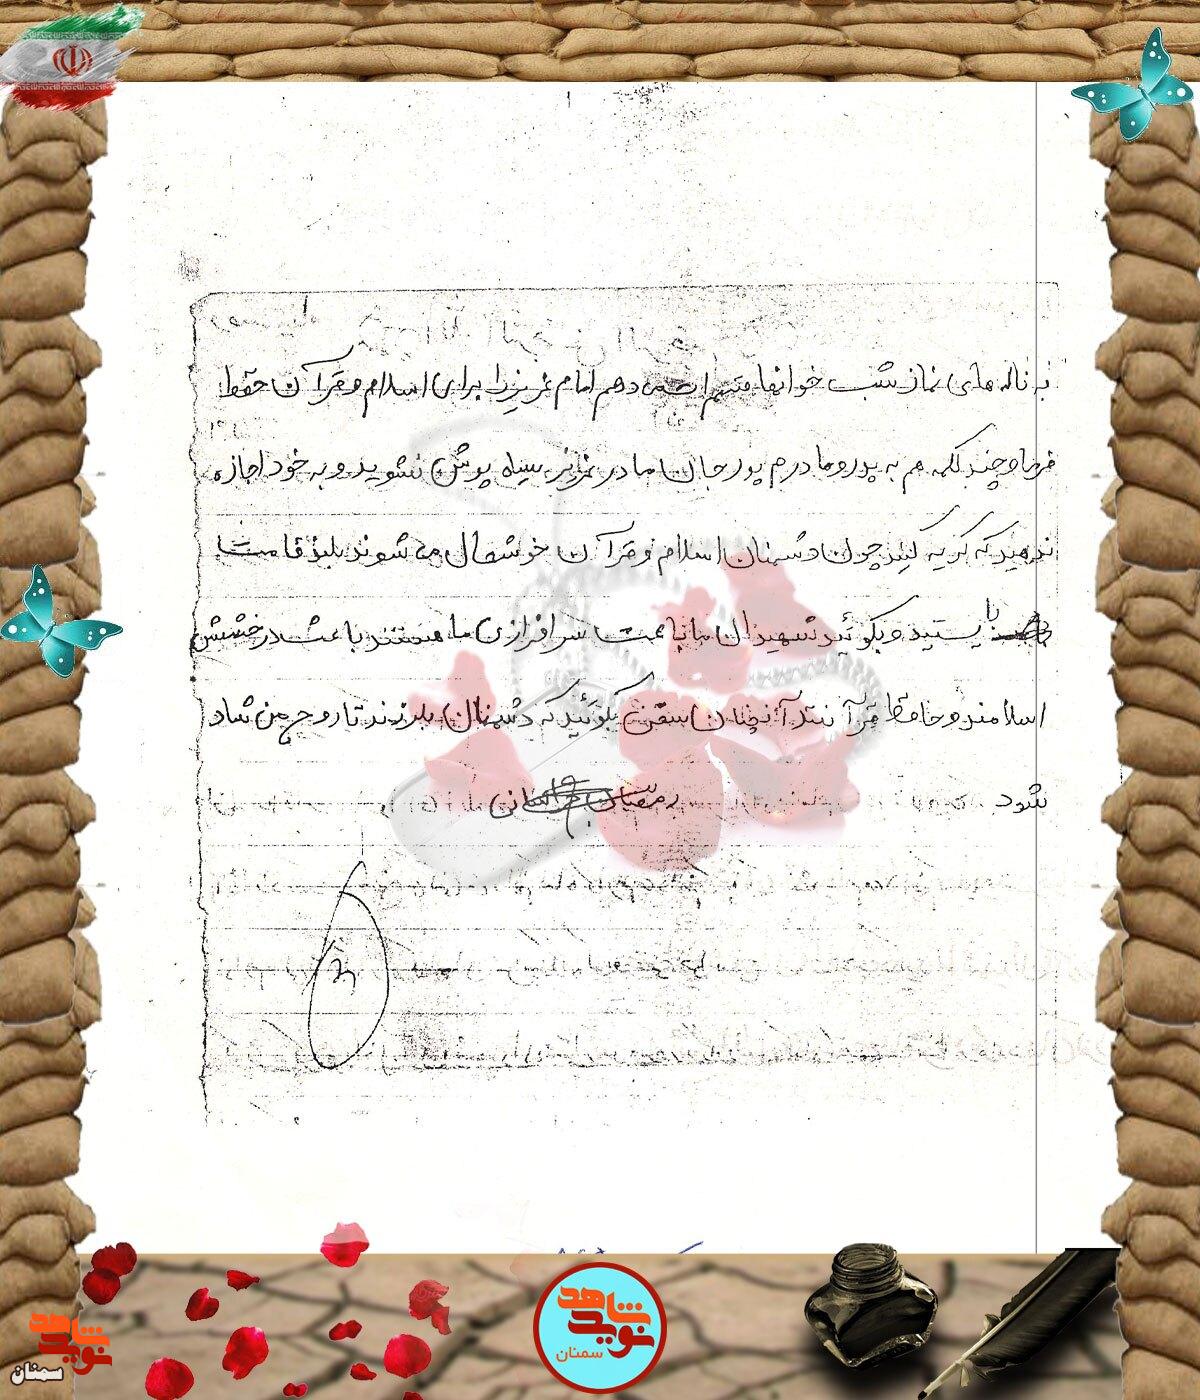 به ناله های نماز شب خوانها قسمت می دهم امام عزیز را برای اسلام و قرآن حفظ
فرما و چند کلمه هم به پدر و مادرم پدر جان مادر عزیزم سیاه پوش نشوید و به خود اجازه
ندهید که گریه کنید چون دشمنان اسلام و قرآن خوشحال می شوند بلند قامت
بایستید و بگوئید شهیدان ما باعث سرافرازی ما هستند باعث درخشش
اسلامند و حافظ قرآنند آنچنان سخن بگوئید که دشمنان بلرزند تا روح من شاد
شود رمضان
۴
نوید شاهد
سمنان
نوید شاهد
سمنان